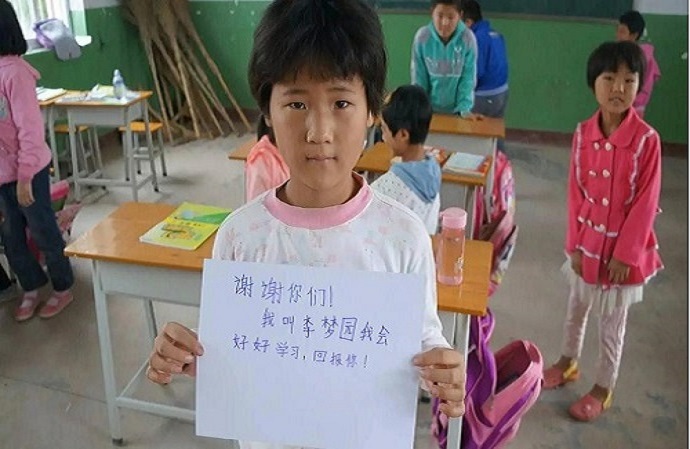 谢谢你们!
我叫李梦园我会
好好学习,回报你!